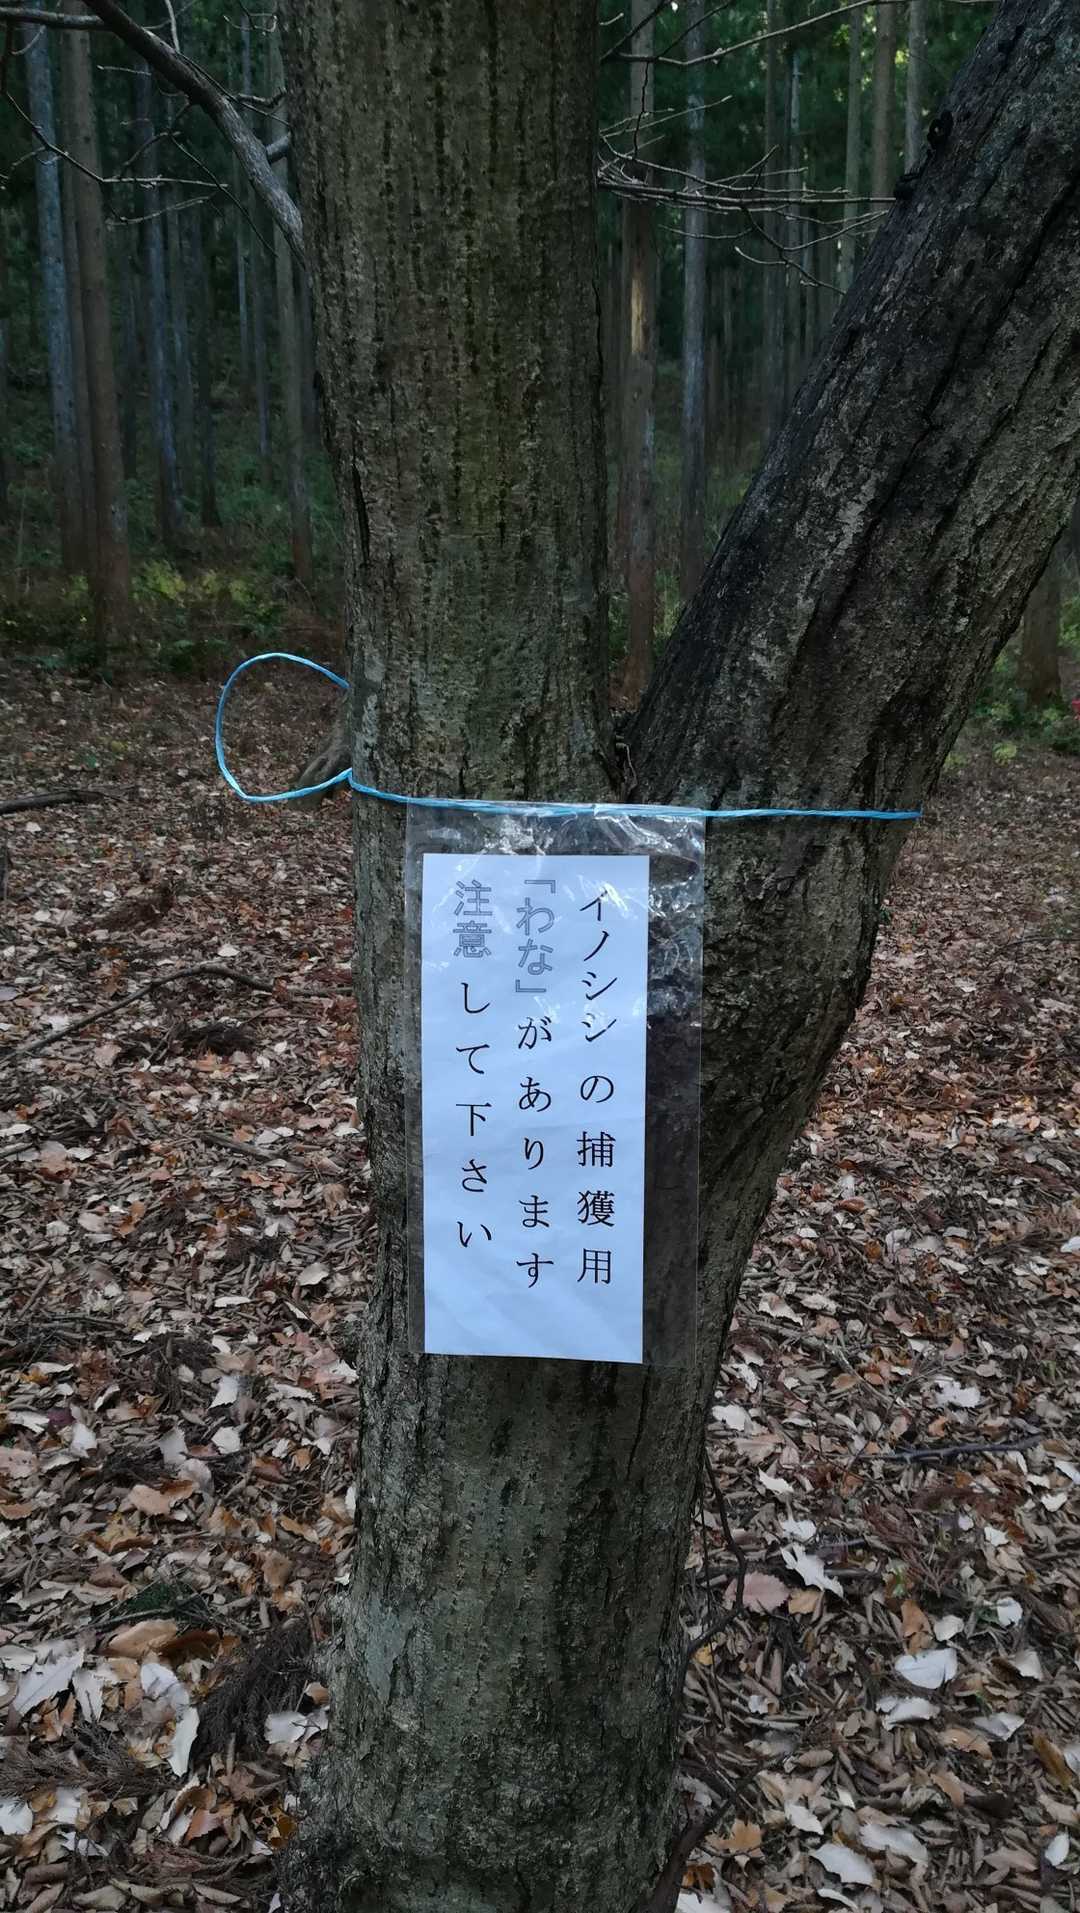 イノシシの捕獲用
「わな」があります
注意して下さい